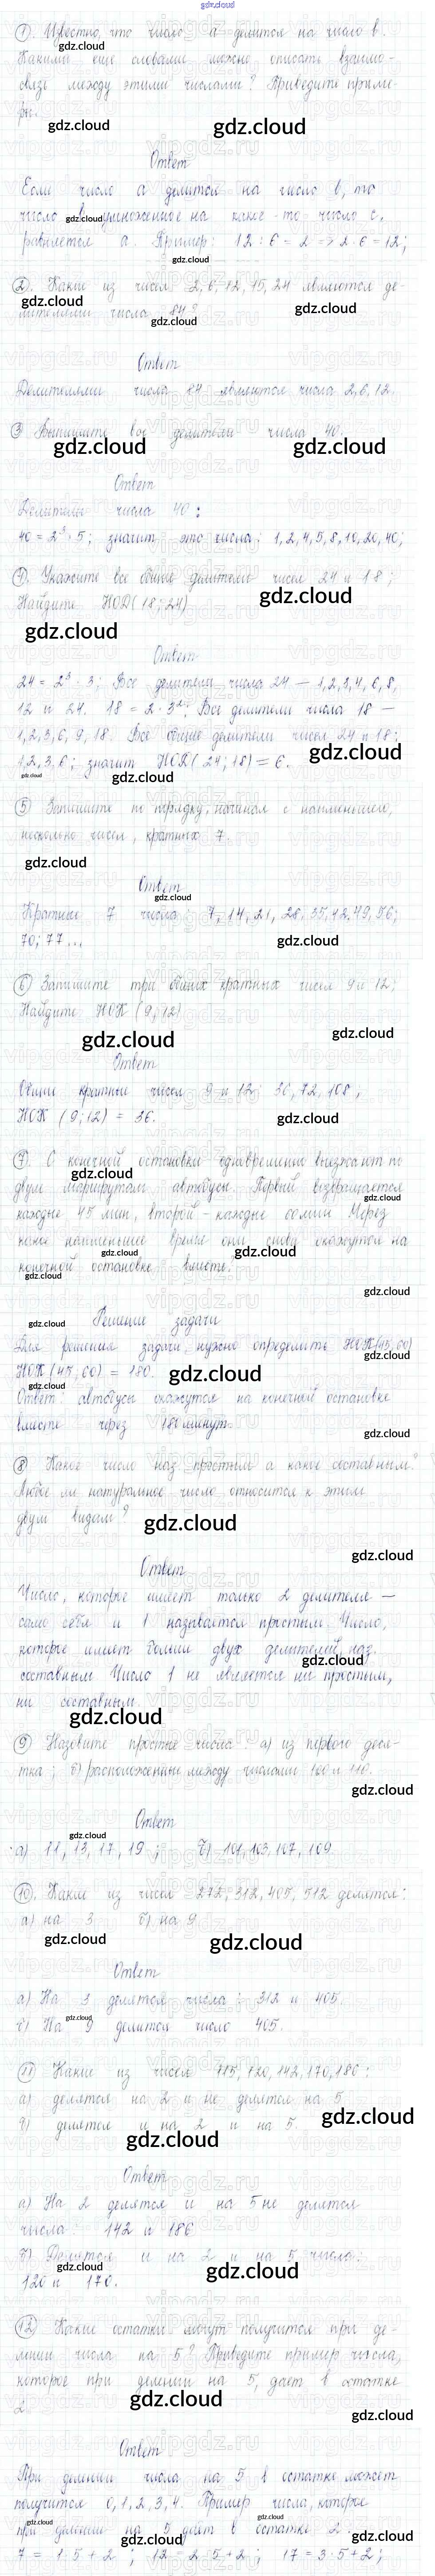 gdz.cloud
1). Известно, что число а делится на число в.
Какими еще словами можно описать взаимо-
связь между этими числами? Приведите приме-
ры.
Ответ
Если число а делится на число в, то
число в умноженное на какое-то число с,
равняется а. Пример: 12 : 6 = 2 => 2 · 6 = 12;
2). Какие из чисел 2, 6, 12, 15, 24 являются де-
лителями числа 84?
Ответ
Делителями числа 84 являются числа 2, 6, 12.
3 Выпишите все делители числа 40.
Ответ
Делители числа 40:
40 = 2³ · 5; значит это числа: 1, 2, 4, 5, 8, 10, 20, 40;
4). Укажите все общие делители чисел 24 и 18;
Найдите НОД(18; 24)
Ответ
24 = 2³ · 3; Все делители числа 24 — 1, 2, 3, 4, 6, 8,
12 и 24. 18 = 2 · 3²; Все делители числа 18 —
1, 2, 3, 6, 9, 18. Все общие делители чисел 24 и 18:
1, 2, 3, 6; значит НОД(24; 18) = 6.
5) Запишите по порядку, начиная с наименьшего,
несколько чисел, кратных 7.
Ответ
Кратные 7 числа: 7, 14, 21, 28, 35, 42, 49, 56;
70; 77...
6) Запишите три общих кратных чисел 9 и 12;
Найдите НОК (9; 12)
Ответ
Общие кратные чисел 9 и 12: 36, 72, 108;
НОК (9; 12) = 36.
7). С конечной остановки одновременно выезжают по
двум маршрутам автобусы. Первый возвращается
каждые 45 мин, второй - каждые 60 мин Через
какое наименьшее время они снова окажутся на
конечной остановке вместе?
Решение задачи
Для решения задачи нужно определить НОК(45, 60)
НОК (45, 60) = 180.
Ответ: автобусы окажутся на конечной остановке
вместе через 180 минут.
8 Какое число наз простым а какое составным?
Любое ли натуральное число относится к этим
двум видам?
Ответ
Число, которое имеет только 2 делителя —
само себя и 1 называется простым. Число,
которое имеет больше двух делителей, наз
составным Число 1 не является ни простым,
ни составным.
9) Назовите простые числа: а) из первого деся-
тка; б) расположенные между числами 100 и 110.
Ответ
а) 11, 13, 17, 19; б) 101, 103, 107, 109
10). Какие из чисел 272, 312, 405, 512 делятся:
а) на 3 б) на 9.
Ответ
а) На 3 делятся числа: 312 и 405.
б) На 9 делится число 405.
11 Какие из чисел 115, 120, 142, 170, 186:
а) делятся на 2 и не делятся на 5
б) делятся и на 2 и на 5.
Ответ
а) На 2 делятся и на 5 не делятся
числа: 142 и 186
б) Делятся и на 2 и на 5 числа:
120 и 170.
12) Какие остатки могут получится при де-
лении числа на 5? Приведите пример числа,
которое при делении на 5, дает в остатке
2.
Ответ
При делении числа на 5 в остатке может
получится 0, 1, 2, 3, 4. Пример числа, которое
при делении на 5 дает в остатке 2:
7 = 1 · 5 + 2; 12 = 2 · 5 + 2; 17 = 3 · 5 + 2;